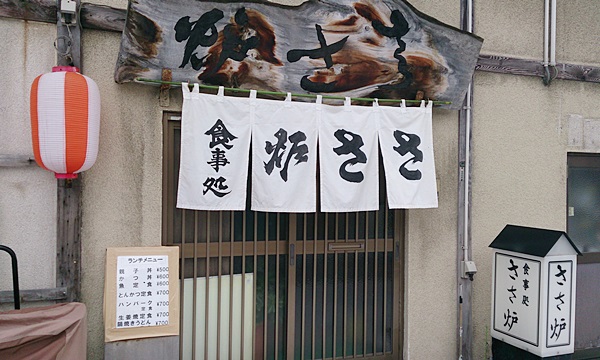 炉ささ
食事処 炉ささ
ランチメニュー
親子丼 ¥500
かつ丼 ¥600
魚定食 ¥600
とんかつ定食 ¥700
ハンバーグ定食 ¥700
生姜焼定食 ¥700
鍋焼きうどん ¥700
食事処
ささ炉
ささ炉